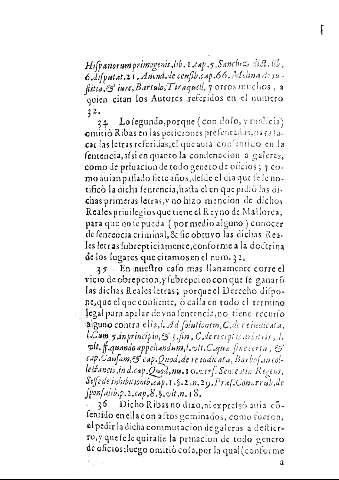 Hispanorum primogenis, lib. 1. cap. 5. Sanchez dict. lib.
6. disputat. 21. Avend. de censib. cap. 66. Molina de iu-
stitia, & iure, Bartulo, Tiraquell, y otros muchos, a
quien citan los Autores referidos en el numero
32.
34 Lo segundo, porque (con dolo, y malicia)
omitiò Ribas en las peticiones presentadas, para sa-
car las letras referidas, el que auia consentido en la
sentencia, assi en quanto la condenacion a galeras,
como de priuacion de todo genero de oficios; y co-
mo auian passado siete años, desde el dia que se le no-
tificò la dicha sentencia, hasta el en que pidiò las di-
chas primeras letras, y no hizo mencion de dichos
Reales priuilegios que tiene el Reyno de Mallorca,
para que no se pueda (por medio alguno) conocer
de sentencia criminal, & sic obtuvo las dichas Rea-
les letras subrepticiamente, conforme a la doctrina
de los lugares que citamos en el num. 32.
35 En nuestro caso mas llanamente corre el
vicio de obrepcion, y subrepcion con que se ganarò
las dichas Reales letras; porque el Derecho dispo-
ne, que el que consiente, ò calla en todo el termino
legal para apelar de vna sentencia, no tiene recurso
alguno contra ella, l. Ad solutionem, C. de re iudicata,
l. Cum
cap. Causam, & cap. Quod, de re iudicata, Barbos. in col-
lectaneis, in d. cap. Quod, nu. 10.
Sesse de inhibitionib. cap. 1. §. 2. n. 29.
36 Dicho Ribas no dixo, ni expresò auia cõ-
sentido en ella con actos geminados, como fueron,
el pedir la dicha conmutacion de galeras a destier-
ro, y que se le quitasse la priuacion de todo genero
de oficios: luego omitiò cosa, por la qual (conforme
a